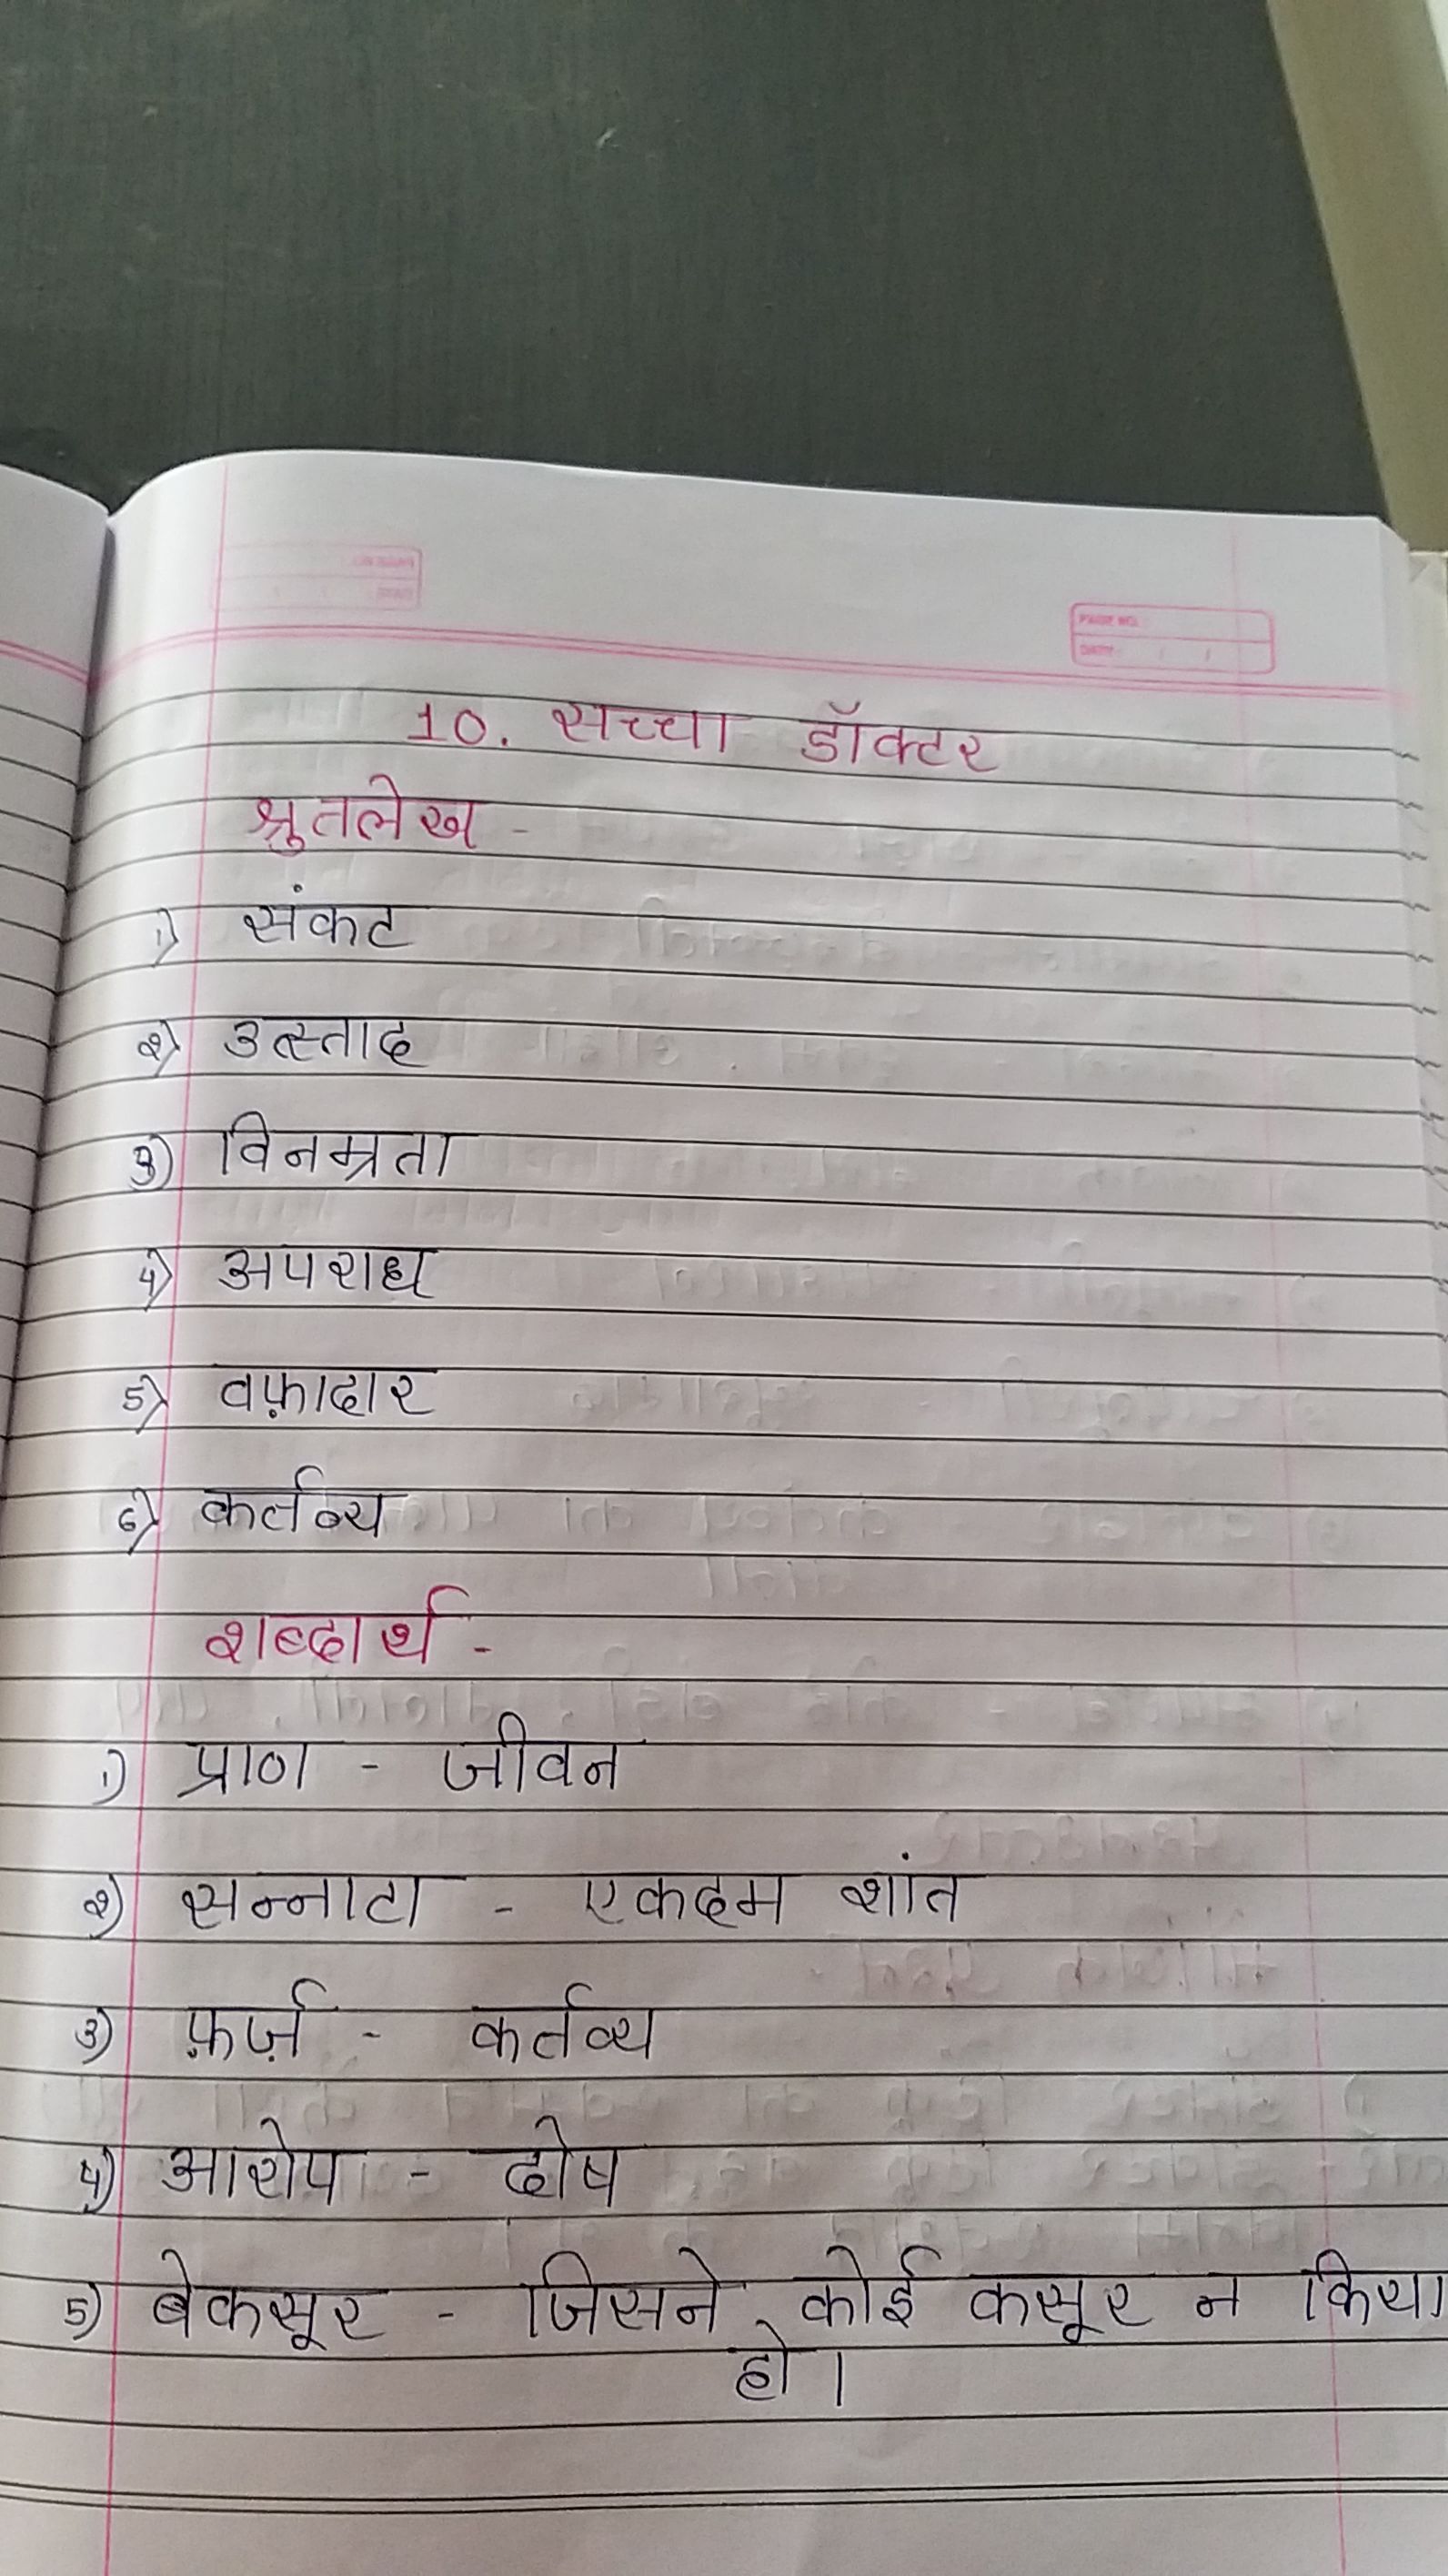 PAGE NO.
DATE: / /
10. सच्चा डॉक्टर
श्रुतलेख -
1) संकट
2) उत्स्ताद
3) विनम्रता
4) अपराध
5) वफ़ादार
6) कर्तव्य
शब्दार्थ -
1) प्राण - जीवन
2) सन्नाटा - एकदम शांत
3) फ़र्ज़ - कर्तव्य
4) आरोप - दोष
5) बेकसूर - जिसने कोई कसूर न किया
हो।